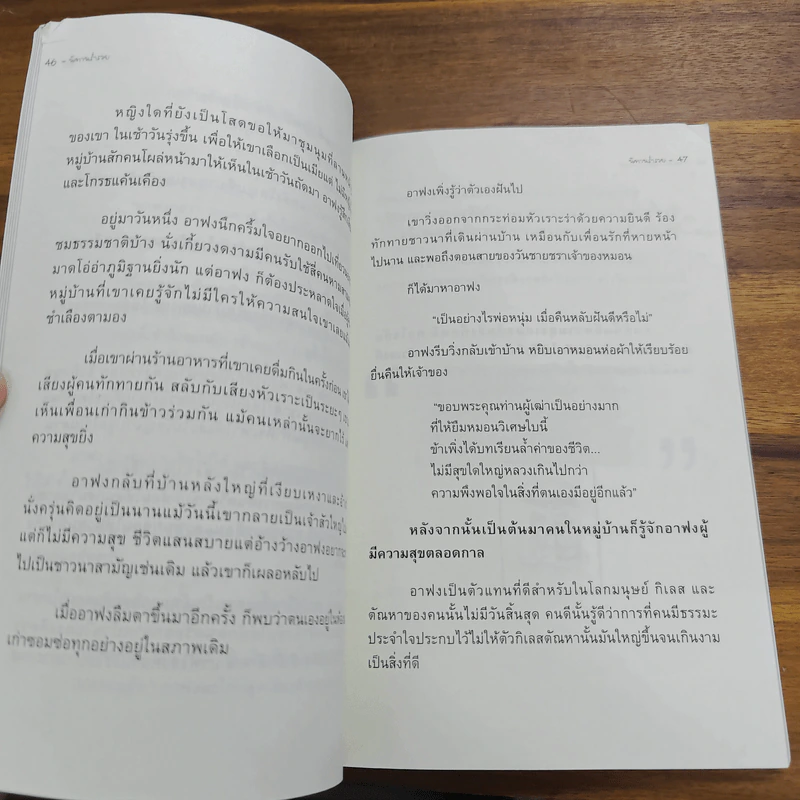 46 -
หญิงใดที่ยังเป็นโสดขอให้มาชุมนุมที่ลาน
ของเขา ในเช้าวันรุ่งขึ้น เพื่อให้เขาเลือกเป็นเมียแต่
หมู่บ้านสักคนโผล่หน้ามาให้เห็นในเช้าวันถัดมา อาฟง
และโกรธแค้นเคือง
อยู่มาวันหนึ่ง อาฟงนึกครึ้มใจอยากออกไปเที่ยว
ชมธรรมชาติบ้าง นั่งเกี้ยวงดงามมีคนรับใช้สี่คนหาม
มาดโอ่อ่าภูมิฐานยิ่งนัก แต่อาฟง ก็ต้องประหลาดใจ
หมู่บ้านที่เขาเคยรู้จักไม่มีใครให้ความสนใจเขาเลย
ชำเลืองตามอง
เมื่อเขาผ่านร้านอาหารที่เขาเคยดื่มกินในครั้งก่อน
เสียงผู้คนทักทายกัน สลับกับเสียงหัวเราะเป็นระยะๆ
เห็นเพื่อนเก่ากินข้าวร่วมกัน แม้คนเหล่านั้นจะยากไร้
ความสุขยิ่ง
อาฟงกลับที่บ้านหลังใหญ่ที่เงียบเหงาและ
นั่งครุ่นคิดอยู่เป็นนานแม้วันนี้เขากลายเป็นเจ้าสัวใหญ่
แต่ก็ไม่มีความสุข ชีวิตแสนสบายแต่อ้างว้างอาฟงอยาก
ไปเป็นชาวนาสามัญเช่นเดิม แล้วเขาก็เผลอหลับไป
เมื่ออาฟงลืมตาขึ้นมาอีกครั้ง ก็พบว่าตนเองอยู่ใน
เก่าซอมซ่อทุกอย่างอยู่ในสภาพเดิม
- 47
อาฟงเพิ่งรู้ว่าตัวเองฝันไป
เขาวิ่งออกจากกระท่อมหัวเราะร่าด้วยความยินดี ร้อง
ทักทายชาวนาที่เดินผ่านบ้าน เหมือนกับเพื่อนรักที่หายหน้า
ไปนาน และพอถึงตอนสายของวันชายชราเจ้าของหมอน
ก็ได้มาหาอาฟง
“เป็นอย่างไรพ่อหนุ่ม เมื่อคืนหลับฝันดีหรือไม่”
อาฟงรีบวิ่งกลับเข้าบ้าน หยิบเอาหมอนห่อผ้าให้เรียบร้อย
ยื่นคืนให้เจ้าของ
“ขอบพระคุณท่านผู้เฒ่าเป็นอย่างมาก
ที่ให้ยืมหมอนวิเศษใบนี้
ข้าเพิ่งได้บทเรียนล้ำค่าของชีวิต...
ไม่มีสุขใดใหญ่หลวงเกินไปกว่า
ความพึงพอใจในสิ่งที่ตนเองมีอยู่อีกแล้ว”
หลังจากนั้นเป็นต้นมาคนในหมู่บ้านก็รู้จักอาฟงผู้
มีความสุขตลอดกาล
อาฟงเป็นตัวแทนที่ดีสำหรับในโลกมนุษย์ กิเลส และ
ตัณหาของคนนั้นไม่มีวันสิ้นสุด คนดีนั้นรู้ดีว่าการที่คนมีธรรมะ
ประจำใจประกบไว้ไม่ให้ตัวกิเลสตัณหานั้นมันใหญ่ขึ้นจนเกินงาม
เป็นสิ่งที่ดี